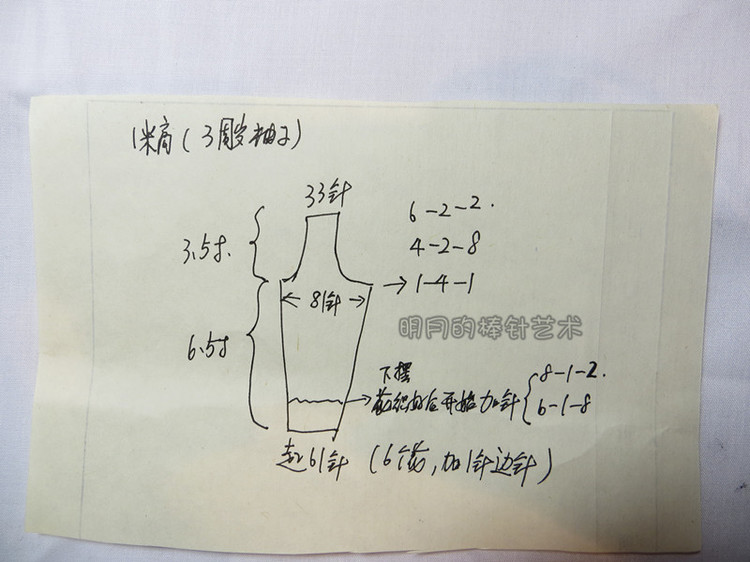 1米高(3周岁袖子)
33针
6-2-2.
4-2-8
1-4-1
3.5寸.
81针
明月的棒针艺术
6.5寸
下摆
花织好后开始加针
8-1-2.
6-1-8
起61针(6个花,加1针边针)